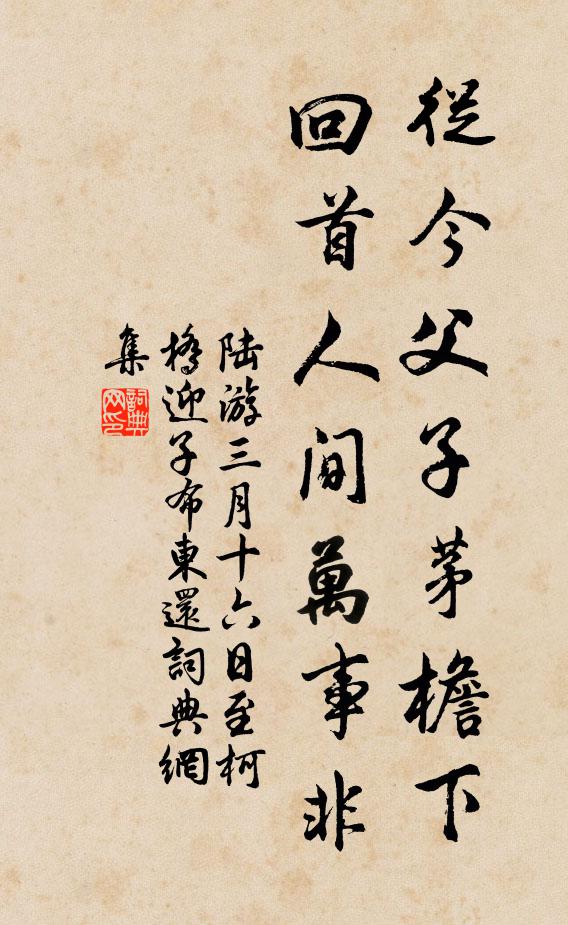 從今父子茅檐下
回首人間萬事非
陆游三月十六日至柯
橋迎子布東還詞典網
集
詞典
网印